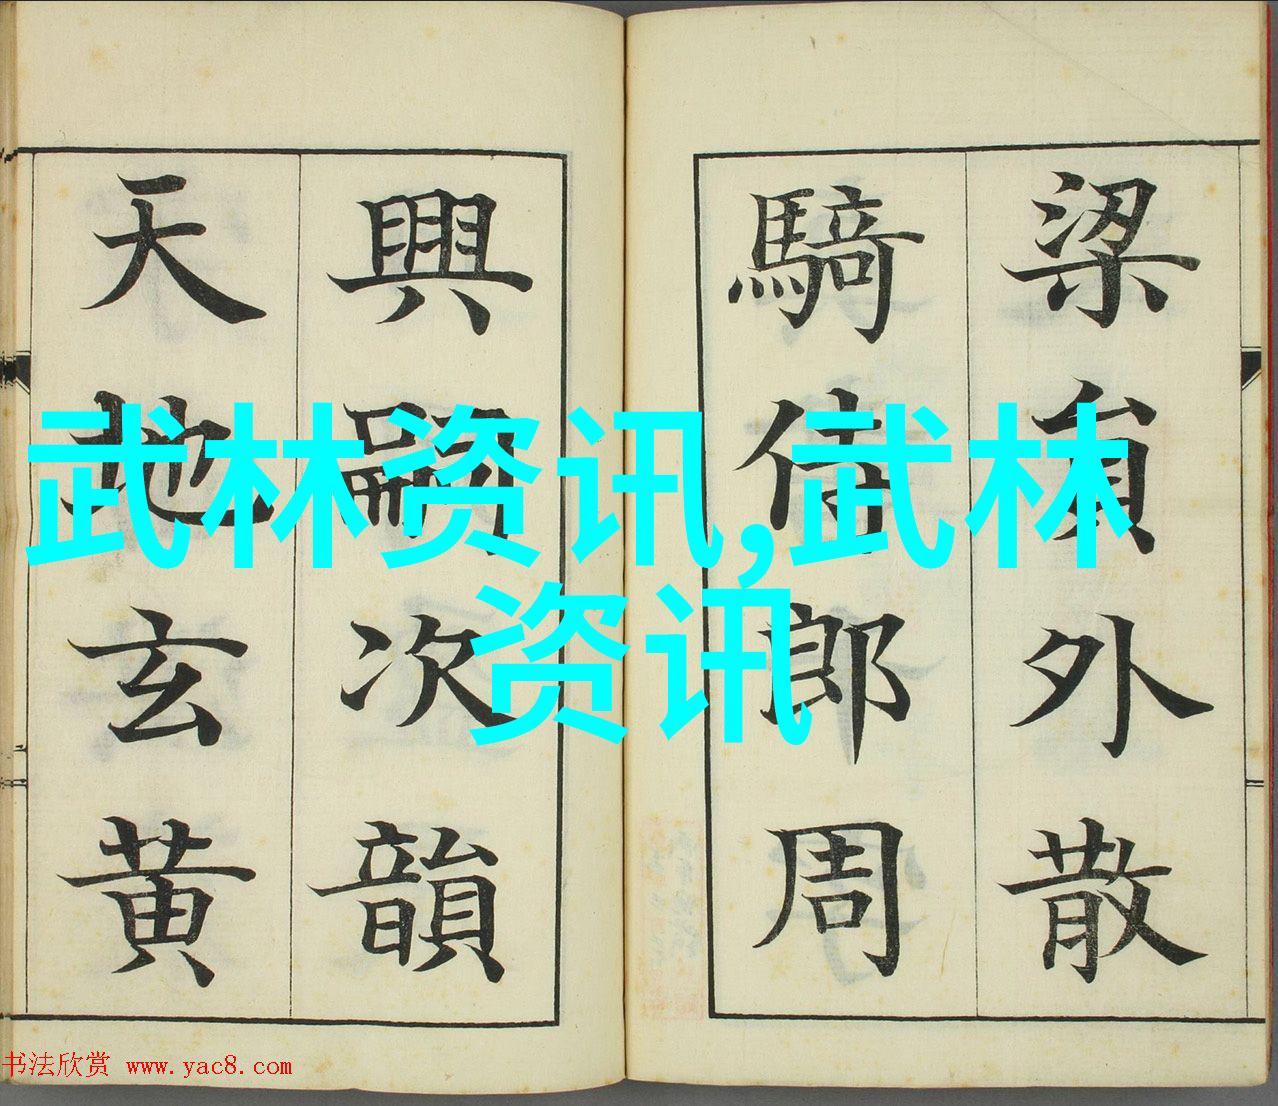 梁貟外散
騎侍郎周
興嗣次韻
天地玄黄
武林资讯,武林
资讯
书法欣赏 www.yac8.com